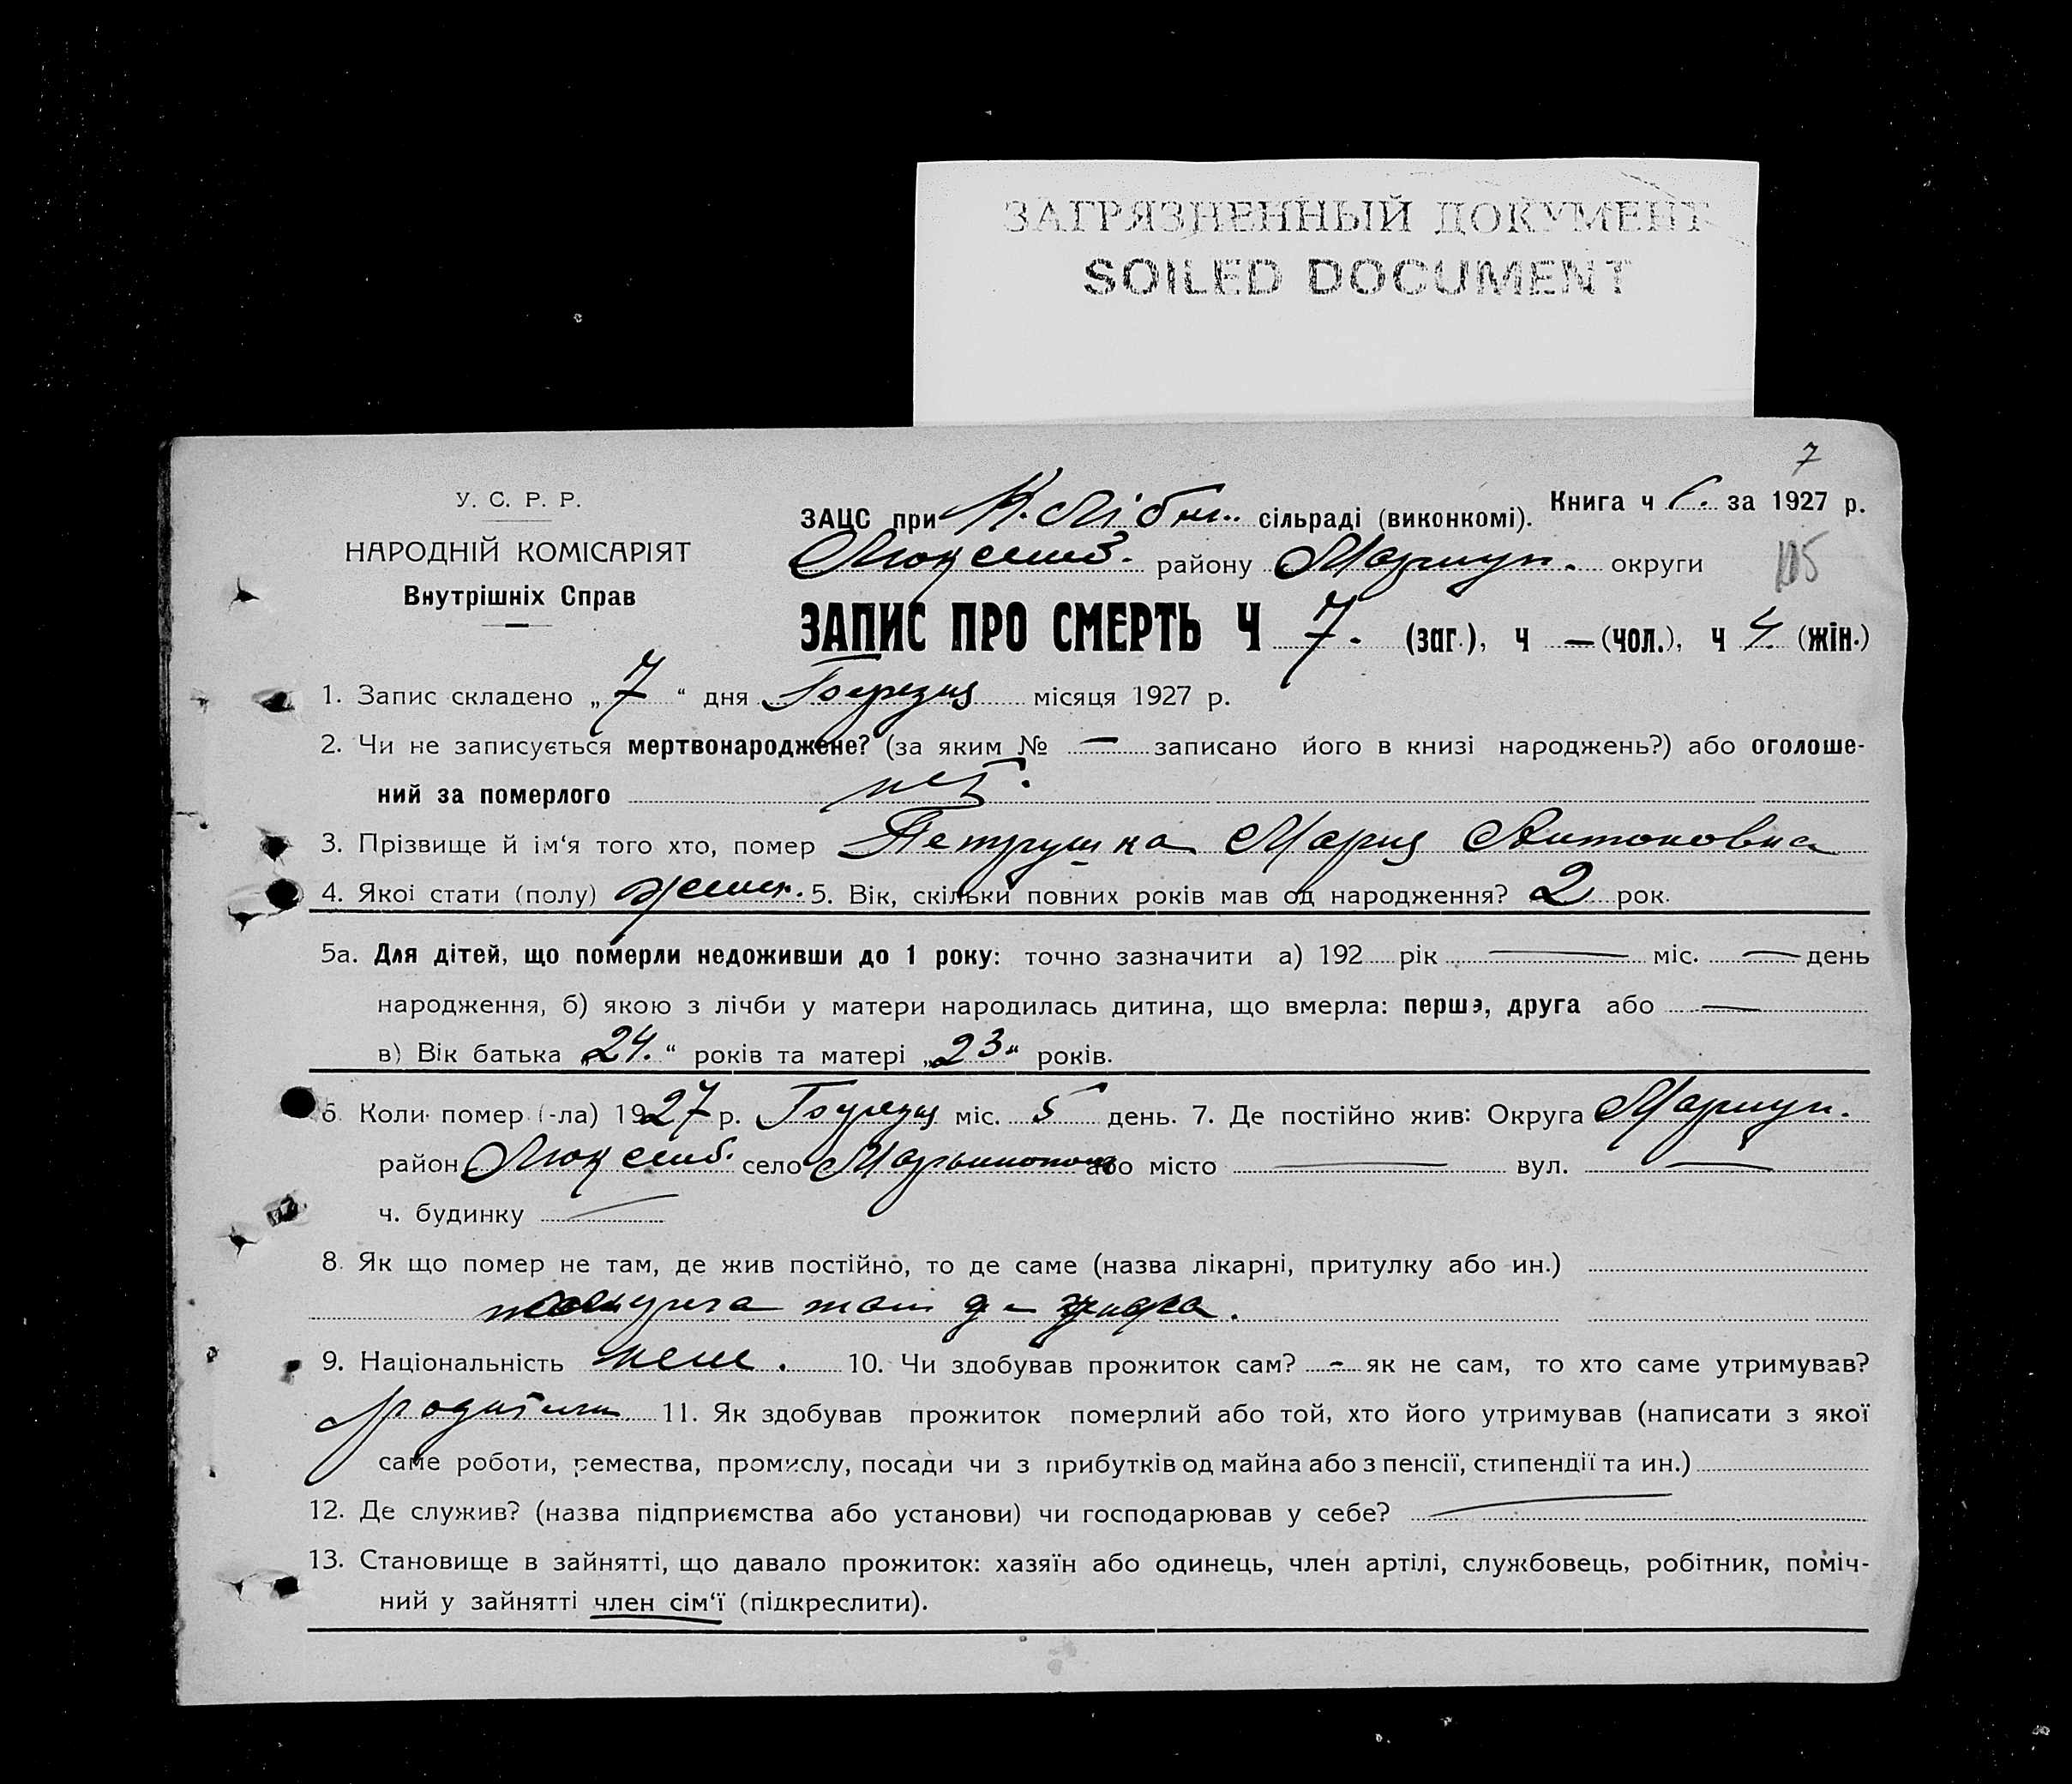 ЗАГРЯЗНЕННЫЙ ДОКУМЕНТ
SOILED DOCUMENT
7
У. С. Р. Р.
НАРОДНІЙ КОМІСАРІЯТ
Внутрішніх Справ
ЗАЦС при сільраді (виконкомі). Книга ч за 1927 р.
району Мариуп. округи
105
ЗАПИС ПРО СМЕРТЬ Ч 7. (заг.), ч — (чол.), ч 4. (жін.)
1. Запис складено „ 7 “ дня місяця 1927 р.
2. Чи не записується мертвонароджене? (за яким № — записано його в книзі народжень?) або оголоше-
ний за померлого нет.
3. Прізвище й ім‘я того хто, помер Петрушка Мария Антоновна
4. Якої стати (полу) 5. Вік, скільки повних років мав од народження? 2 рок.
5а. Для дітей, що померли недоживши до 1 року: точно зазначити а) 192 рік — міс. — день
народження, б) якою з лічби у матери народилась дитина, що вмерла: перша, друга або —
в) Вік батька „24.“ років та матері „23“ років.
6. Коли помер (-ла) 1927 р. міс. 5 день. 7. Де постійно жив: Округа Мариуп.
район село або місто — вул. —
ч. будинку —
8. Як що помер не там, де жив постійно, то де саме (назва лікарні, притулку або ин.)
9. Національність 10. Чи здобував прожиток сам? - як не сам, то хто саме утримував?
родители 11. Як здобував прожиток померлий або той, хто його утримував (написати з якої
саме роботи, ремества, промислу, посади чи з прибутків од майна або з пенсії, стипендії та ин.)
12. Де служив? (назва підприємства або установи) чи господарював у себе? —
13. Становище в зайнятті, що давало прожиток: хазяїн або одинець, член артілі, службовець, робітник, поміч-
ний у зайнятті член сім‘ї (підкреслити).